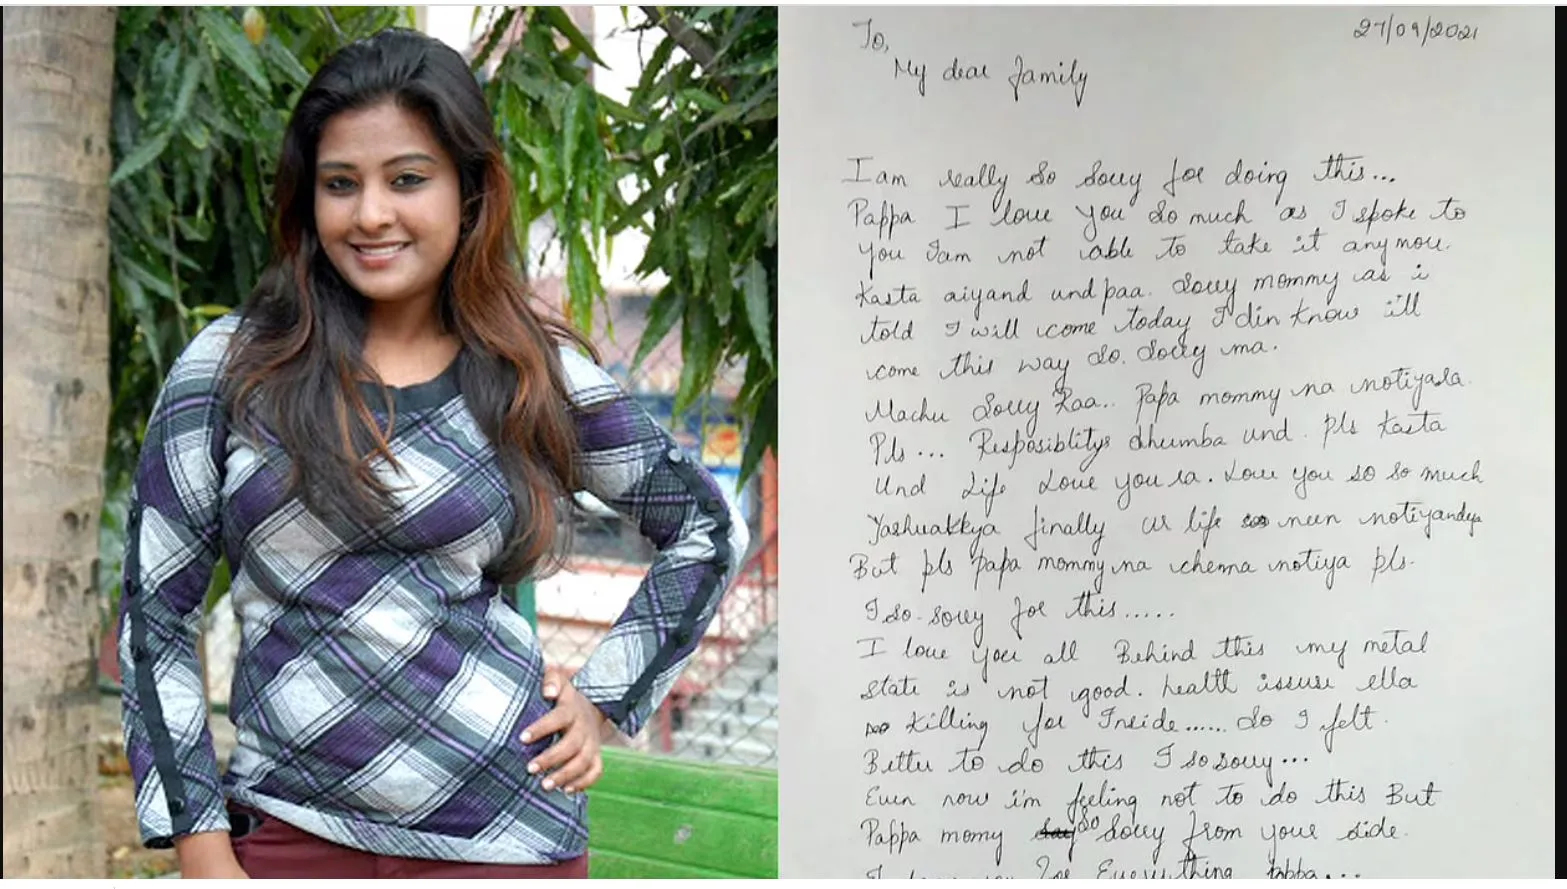 27/09/2021
To,
My dear family
I am really so sorry for doing this...
Pappa I love you so much as I spoke to
you Iam not able to take it anymore.
Kasta aiyand und paa. Sorry mommy as i
told I will come today I din know ill
come this way so. Sorry ma.
Machu Sorry Raa.. Papa mommy na notiyala.
Pls... Resposiblitys dhumba und. pls kasta
Und Life Love you ra. Love you so so much
Yashuakkya finally ur life neen notiyandya
But pls papa mommy na chenna notiya pls.
I so. sorry for this.....
I love you all Behind this my metal
state is not good. health issuse ella
killing for Inside...... So I felt.
Better to do this I so sorry...
Even now i'm feeling not to do this But
Pappa momy so sorry from your side.
Everything pappa...